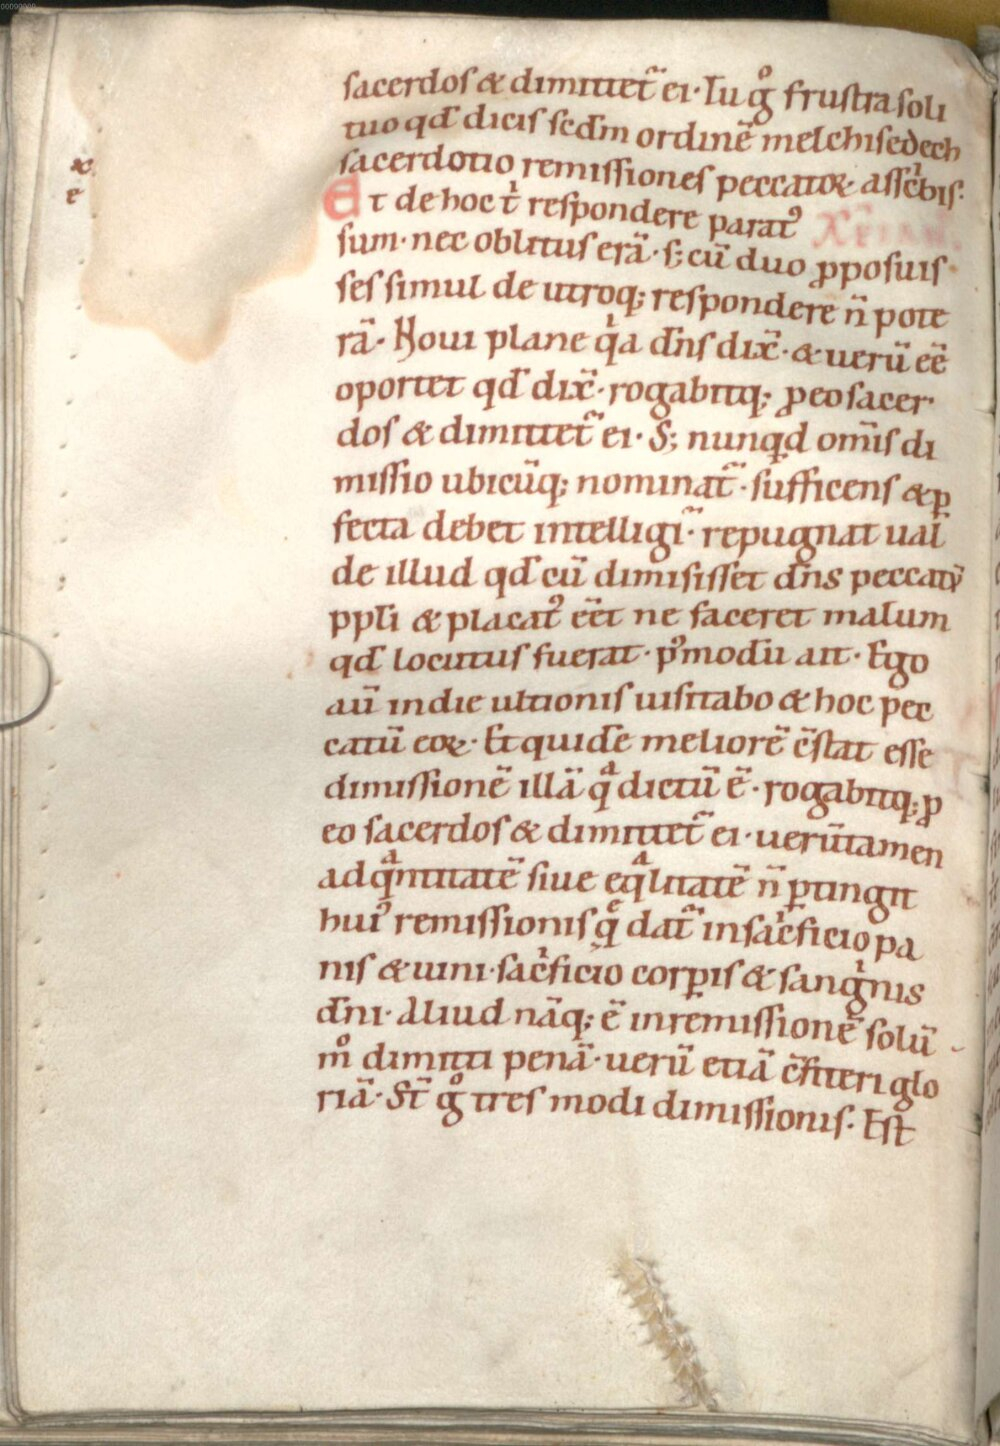 sacerdos & dimittet᷑ ei· Tu gͦ frustra soli
tuo qđ dicis scđm ordinē melchisedech
sacerdotio remissiones peccatoꝝ assc̍bis·
Et de hoc t̍ respondere parat᷒ XPIAN.
sum· nec oblitus erā· s; cū duo ꝓposuis
ses simul de utroq; respondere ñ pote
rā· Noui plane q̍a dñs dix̄· & uerū eē
oportet qđ dix̄· rogabitq; ꝓ eo sacer
dos & dimittet᷑ ei· S; nunqͣd om̄is di
missio ubicūq; nominat᷑· sufficens & ꝑ
fecta debet intelligi᷑· repugnat ual
de illud qđ cū dimisisset dñs peccatū
ppłi & placat᷒ eēt ne faceret malum
qđ locutus fuerat· p᷒modū ait· Ego
aū in die ultionis uisitabo & hoc pec
catū eoꝝ· Et quidē meliorē c̄stat esse
dimissionē illā qͣ dictū ē· rogabitq; ꝓ
eo sacerdos & dimittet᷑ ei· uerūtamen
ad qͣntitatē siue eqͣlitatē ñ ꝑtingit
hui᷒ remissionis q̄ dat᷑ in sac̍ficio pa
nis & uini· sac̍ficio corꝑis & sang̍nis
dñi· Aliud nāq; ē in remissionē solū
mͦ dimitti penā· uerū etiā c̄fiteri glo
riā· St̄ gͦ tres modi dimissionis· Est